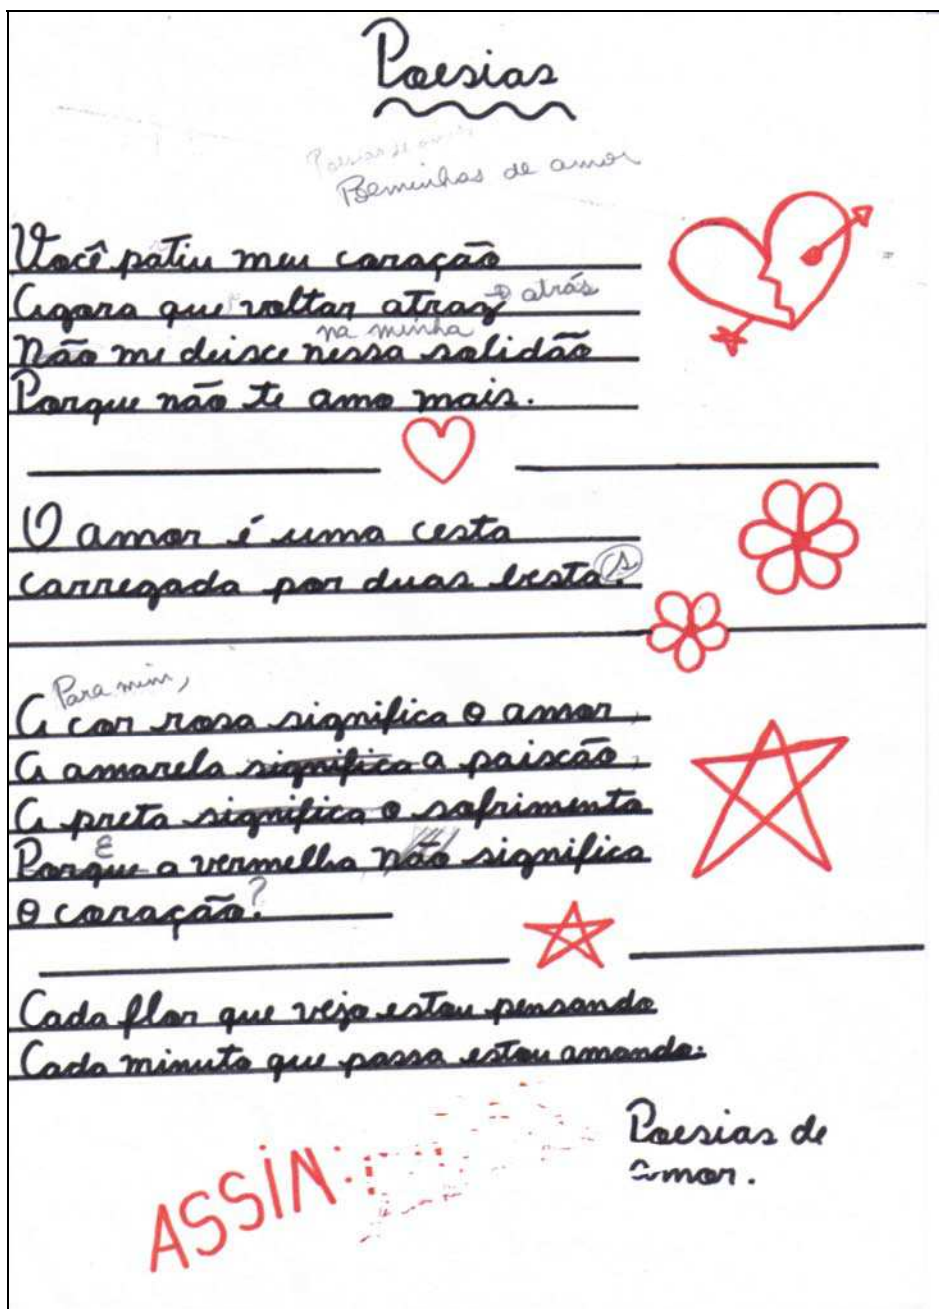 Poesias
Poesias de amor
Poeminhas de amor
Você patiu meu coração
Agora que voltar atraz atrás
na minha
Não me deisce nessa solidão
Porque não te amo mais.
O amor é uma cesta
carregada por duas besta. s
Para mim,
A cor rosa significa o amor,
A amarela significa a paiscão,
A preta significa o sofrimento
E
Porque a vermelha não significa
O coração. ?
Cada flor que vejo estou pensando
Cada minuto que passa estou amando.
Poesias de
amor.
ASSIN.: